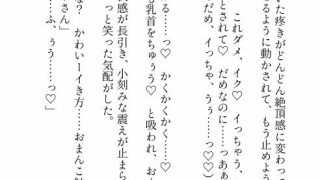 いた疼きがどんどん絶頂感に変わって
るように動かされて、もう止めよう
これダメ、イク♡ いっちゃう、
とされて♡ だめなのに……っあ
だめ、イっちゃ、うぅ……っ♡♡
る……っ♡ かくかくかく……♡
る乳首をちゅぅう♡ と吸われ、お
感が長引き、小刻みな震えが止まら
っと笑った気配がした。
な? かわいーイき方……おまんこ
さん」
……ふ、ぅう……っ♡」